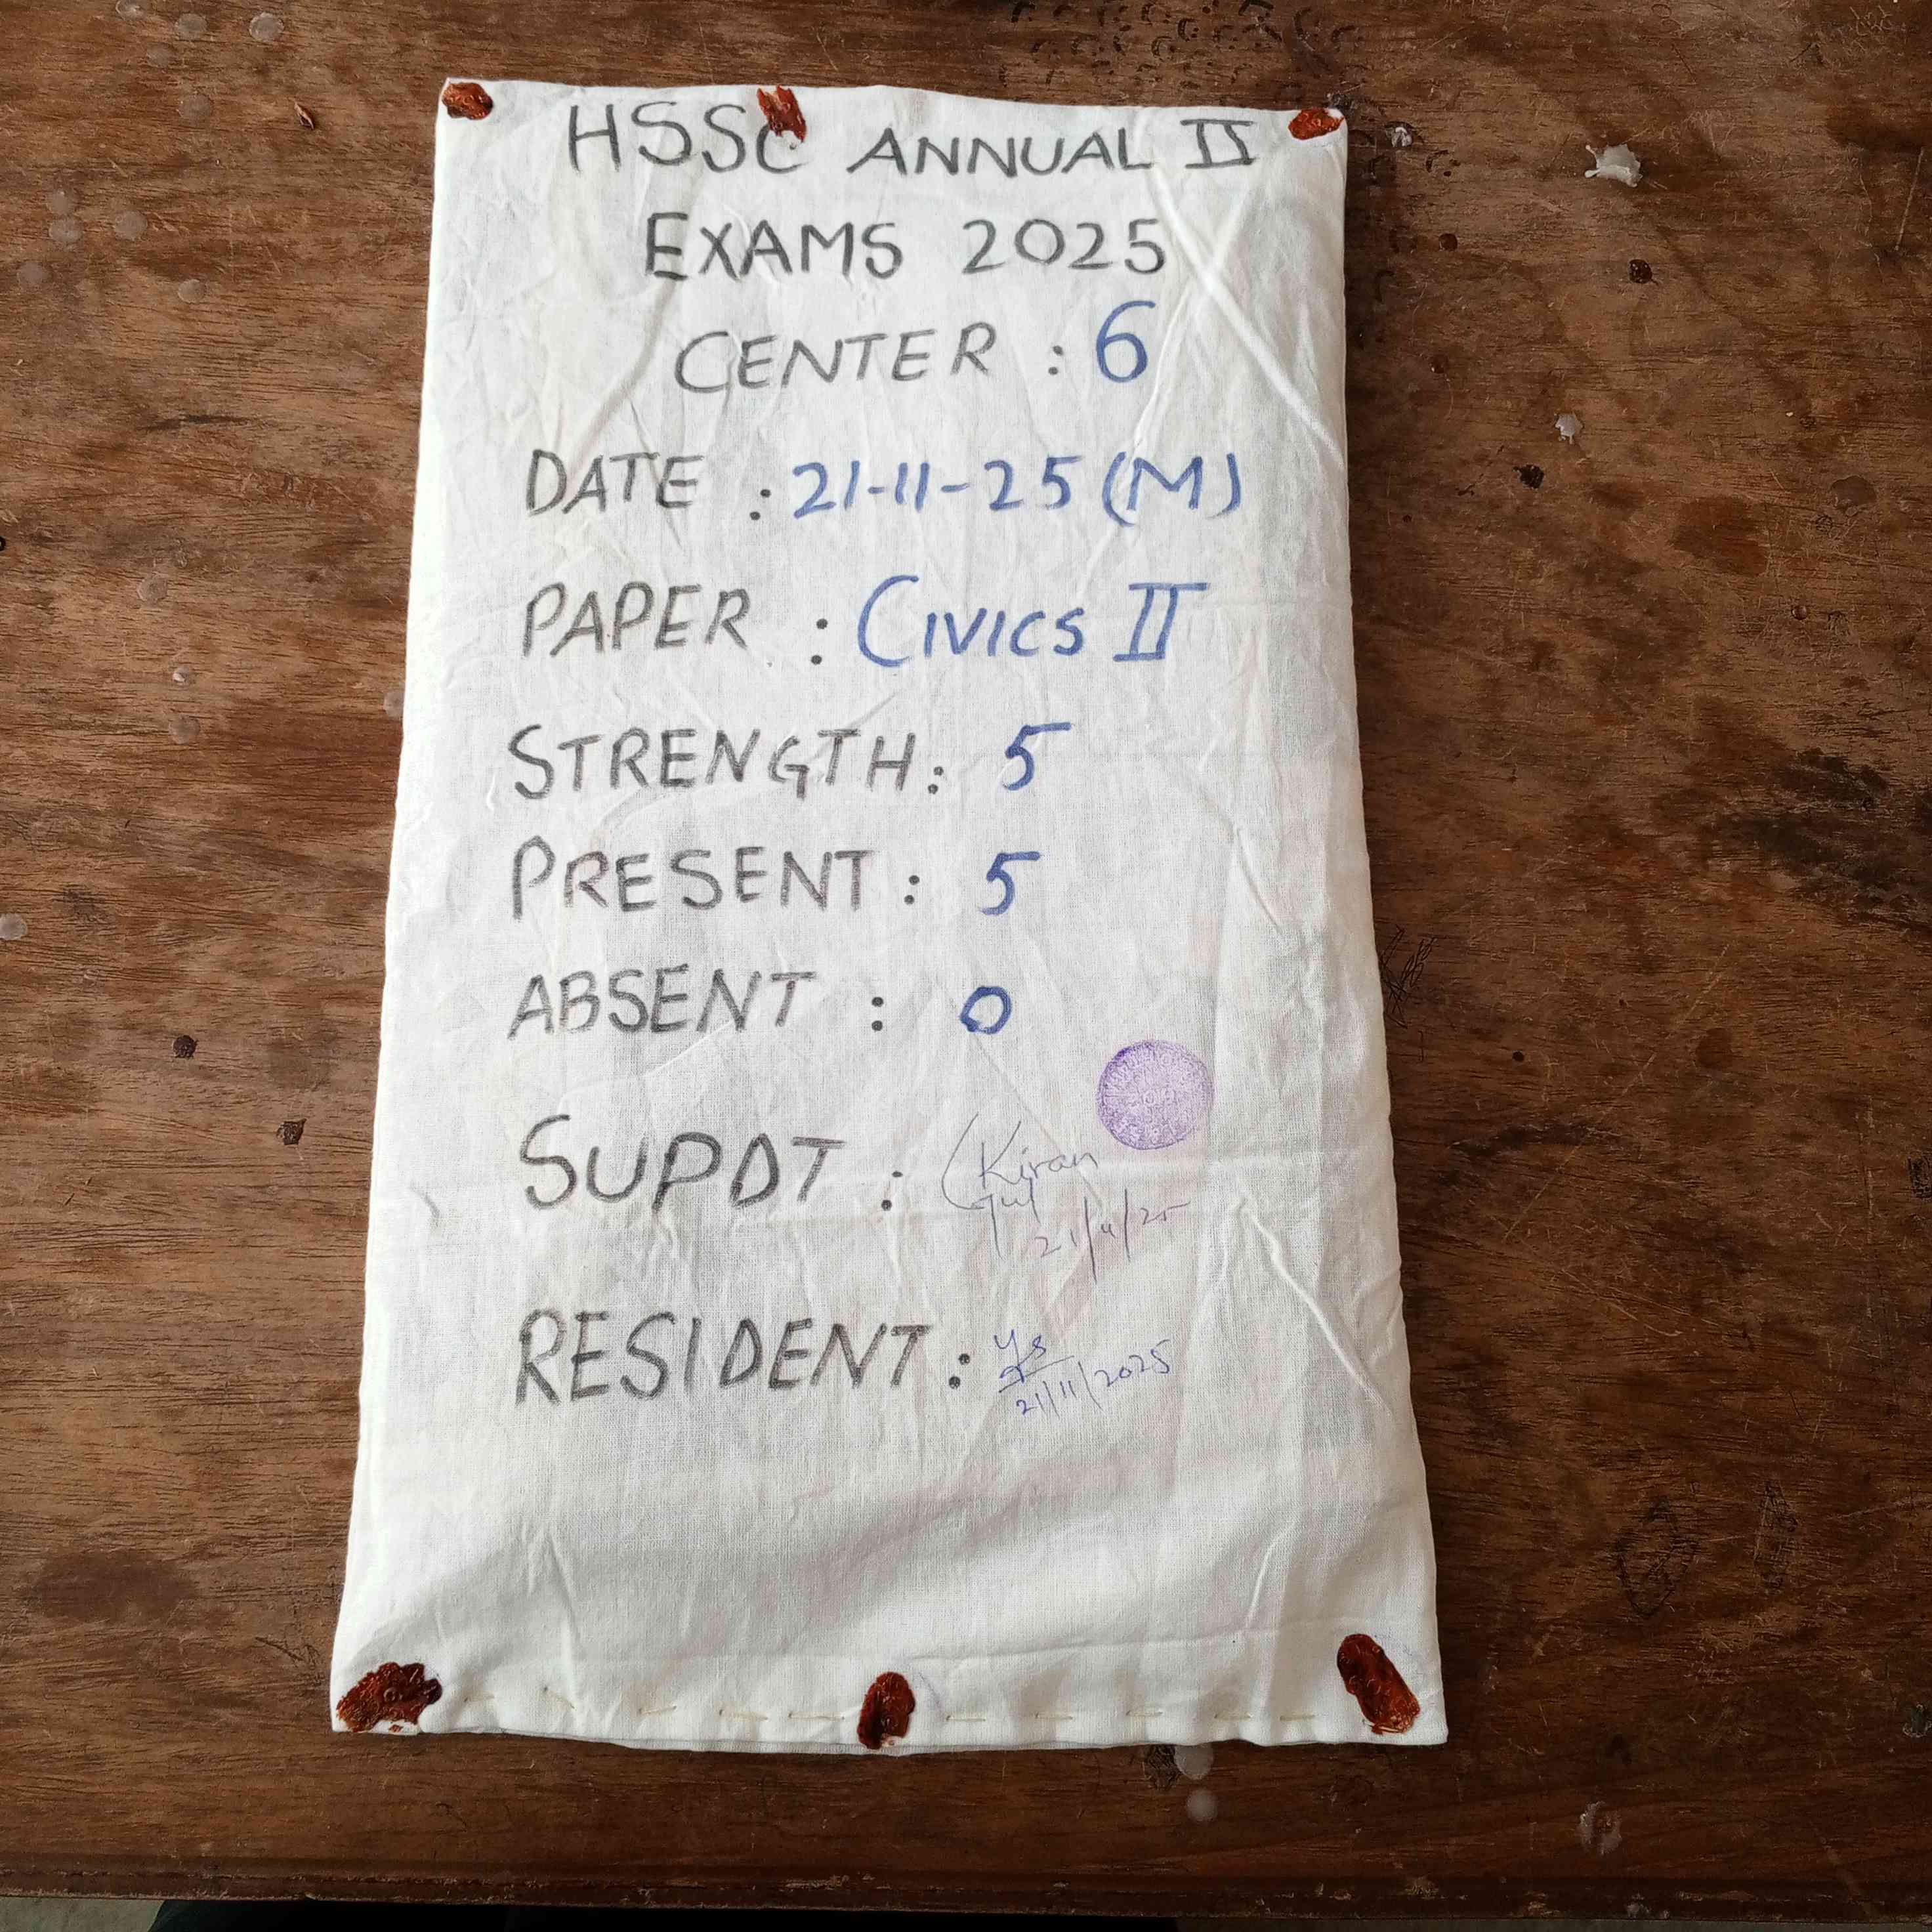 HSSC ANNUAL II
EXAMS 2025
CENTER : 6
DATE : 21-11-25 (M)
PAPER : CIVICS II
STRENGTH: 5
PRESENT: 5
ABSENT : 0
SUPDT : Kiran
Gul
21/11/25
RESIDENT :
21/11/2025